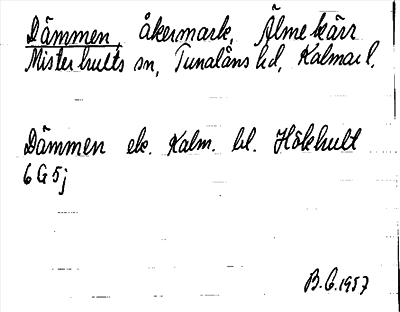 Dämmen, åkermark, Älmekärr
Misterhults sn, Tunaläns hd, Kalmar l.
Dämmen ek. Kalm. bl. Hökhult
6 G 5 j
B.G. 1957